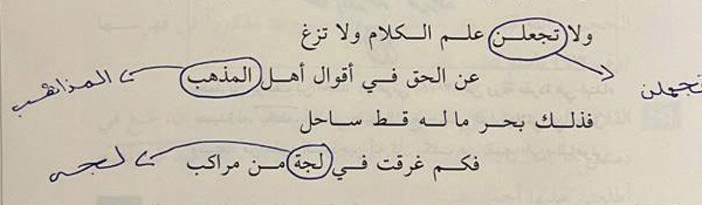 ولا تجعلن علم الكلام ولا تزغ
عن الحق في أقوال أهل المذهب
تجهلن
المذاهب
فذلك بحر ما له قط ساحل
فكم غرقت في لجة من مراكب
لجه